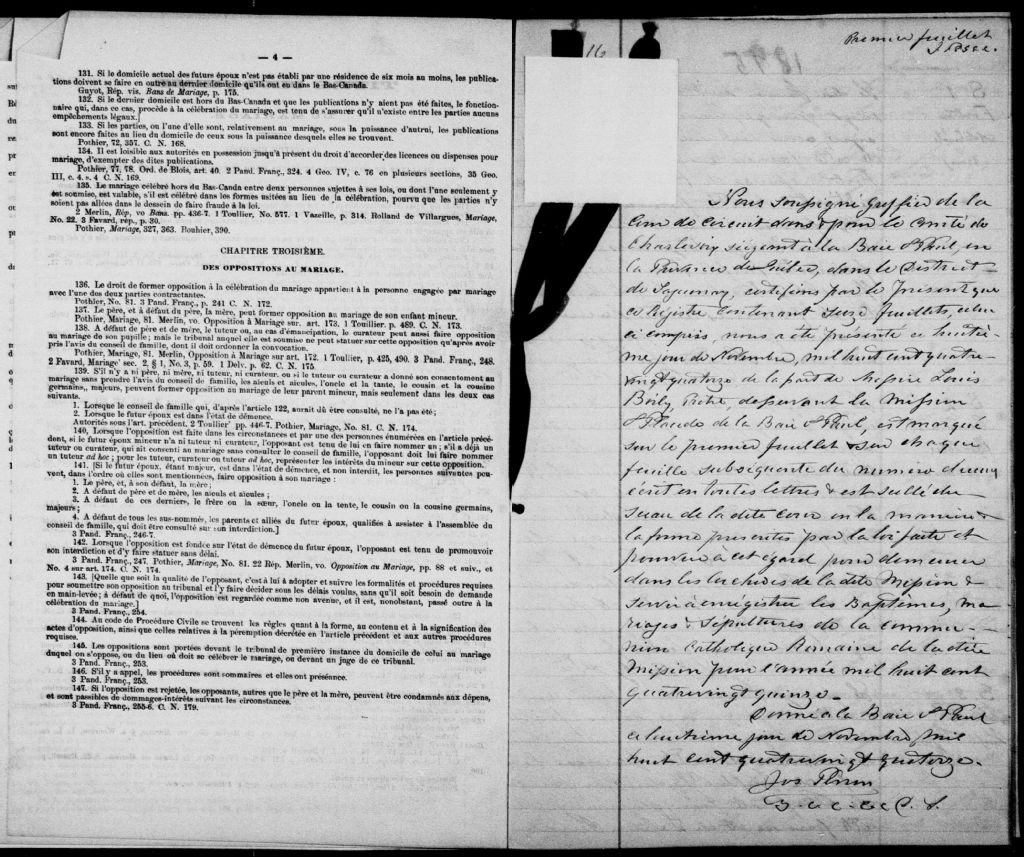 — 4 —
131. Si le domicile actuel des futurs époux n'est pas établi par une résidence de six mois au moins, les publica-
tions doivent se faire en outre au dernier domicile qu'ils ont eu dans le Bas-Canada.
Guyot, Rép. vis. Bans de Mariage, p. 175.
132. Si le dernier domicile est hors du Bas-Canada et que les publications n'y aient pas été faites, le fonction-
naire qui, dans ce cas, procède à la célébration du mariage, est tenu de s'assurer qu'il n'existe entre les parties aucuns
empêchements légaux.]
133. Si les parties, ou l'une d'elle sont, relativement au mariage, sous la puissance d'autrui, les publications
sont encore faites au lieu du domicile de ceux sous la puissance desquels elles se trouvent.
Pothier, 72, 357. C. N. 168.
134. Il est loisible aux autorités en possession jusqu'à présent du droit d'accorder des licences ou dispenses pour
mariage, d'exempter des dites publications.
Pothier, 77, 78. Ord. de Blois, art. 40. 2 Pand. Franç., 324. 4 Geo. IV, c. 76 en plusieurs sections, 35 Geo.
III, c. 4. s. 4 C. N. 169.
135. Le mariage célébré hors du Bas-Canda entre deux personnes sujettes à ses lois, ou dont l'une seulement y
est soumise, est valable, s'il est célébré dans les formes usitées au lieu de la célébration, pourvu que les parties n'y
soient pas allées dans le dessein de faire fraude à la loi.
2 Merlin, Rép, vo Bans. pp. 436-7. 1 Toullier, No. 577. 1 Vazeille, p. 314. Rolland de Villargues, Mariage,
No. 22. 3 Favard, rép., p. 30.
Pothier, Mariage, 327, 363. Bouhier, 390.
CHAPITRE TROISIÈME.
DES OPPOSITIONS AU MARIAGE.
136. Le droit de former opposition à la célébration du mariage appartient à la personne engagée par mariage
avec l'une des deux parties contractantes.
Pothier, No. 81. 3 Pand. Franç., p. 241 C. N. 172.
137. Le père, et à défaut du père, la mère, peut former opposition au mariage de son enfant mineur.
Pothier, Mariage, 81. Merlin, vo. Opposition à Mariage sur. art. 173. 1 Toullier. p. 489. C. N. 173.
138. A défaut de père et de mère, le tuteur ou, au cas d'émancipation, le curateur peut aussi faire opposition
au mariage de son pupille; mais le tribunal auquel elle est soumise ne peut statuer sur cette opposition qu'après avoir
pris l'avis du conseil de famille, dont il doit ordonner la convocation.
Pothier, Mariage, 81. Merlin, Opposition à Mariage sur art. 172. 1 Toullier, p. 425, 490. 3 Pand. Franç., 248.
2 Favard, Mariage' sec. 2, § 1, No. 3, p. 59. 1 Delv. p. 62. C. N. 175.
139. S'il n'y a ni père, ni mère, ni tuteur, ni curateur, ou si le tuteur ou curateur a donné son consentement au
mariage sans prendre l'avis du conseil de famille, les aïeuls et aïeules, l'oncle et la tante, le cousin et la cousine
germains, majeurs, peuvent former opposition au mariage de leur parent mineur, mais seulement dans les deux cas
suivants.
1. Lorsque le conseil de famille qui, d'après l'article 122, aurait dû être consulté, ne l'a pas été;
2. Lorsque le futur époux est dans l'état de démence.
Autorités sous l'art. précédent. 2 Toullier' pp. 446-7. Pothier, Mariage, No. 81. C. N. 174.
140, Lorsque l'opposition est faite dans les circonstances et par une des personnes énumérées en l'article précé-
dent, si le futur époux mineur n'a ni tuteur ni curateur, l'opposant est tenu de lui en faire nommer un; s'il a déjà un
tuteur ou curateur, qui ait consenti au mariage sans consulter le conseil de famille, l'opposant doit lui faire nommer
un tuteur ad hoc; pour les tuteur, curateur ou tuteur ad hoc, représenter les intérêts du mineur sur cette opposition.
141. [Si le futur époux, étant majeur, est dans l'état de démence, et non interdit, les personnes suivantes peu-
vent, dans l'ordre où elles sont mentionnées, faire opposition à son mariage:
1. Le père, et, à son défaut, la mère;
2. A défaut de père et de mère, les aïeuls et aïeules;
3. A défaut de ces derniers, le frère ou la sœur, l'oncle ou la tente, le cousin ou la cousine germains,
majeurs;
4. A défaut de tous les sus-nommés, les parents et alliés du futur époux, qualifiés à assister à l'assemblée du
conseil de famille, qui doit être consulté sur son interdiction.]
3 Pand. Franç., 246-7.
142. Lorsque l'opposition est fondée sur l'état de démence du futur époux, l'opposant est tenu de promouvoir
son interdiction et d'y faire statuer sans délai.
3 Pand. Franç., 247. Pothier, Mariage, No. 81. 22 Rép. Merlin, vo. Opposition au Mariage, pp. 88 et suiv., et
No. 4 sur art. 174. C. N. 174.
143. [Quelle que soit la qualité de l'opposant, c'est à lui à adopter et suivre les formalités et procédures requises
pour soumettre son opposition au tribunal et l'y faire décider sous les délais voulus, sans qu'il soit besoin de demande
en main-levée; à défaut de quoi, l'opposition est regardée comme non avenue, et il est, nonobstant, passé outre à la
célébration du mariage.]
3 Pand. Franç., 254.
144. Au code de Procédure Civile se trouvent les règles quant à la forme, au contenu et à la signification des
actes d'opposition, ainsi que celles relatives à la péremption décrétée en l'article précédent et aux autres procédures
requises.
145. Les oppositions sont portées devant le tribunal de première instance du domicile de celui au mariage
duquel on s'oppose, ou du lieu où doit se célébrer le mariage, ou devant un juge de ce tribunal.
3 Pand. Franç., 253.
146. S'il y a appel, les procédures sont sommaires et elles ont préséance.
3 Pand. Franç., 253.
147. Si l'opposition est rejetée, les opposants, autres que le père et la mère, peuvent être condamnés aux dépens,
et sont passibles de dommages-intérêts suivant les circonstances.
3 Pand. Franç., 255-6. C. N. 179.
16
1895
Premier feuillet
Nous soussigné greffier de la
Cour de Circuit dans & pour le Comté de
Charlevoix siégeant à la Baie St Paul, en
la Province de Québec, dans le District
de Saguenay, certifions par le présent que
ce Registre contenant seize feuillets, celui
ci compris, nous a été présenté ce huitiè
me jour de Novembre, mil huit cent quatre-
vingt quatorze de la part de Messire Louis
Boily Prêtre, desservant la Mission
St Placide de la Baie St Paul, est marqué
sur le premier feuillet & sur chaque
feuille subséquente du numéro d'icelui
écrit en toutes lettres & est scellé du
sceau de la dite cour en la manière &
la forme prescrites par la loi faite et
pourvue à cet égard pour demeurer
dans les Archives de la dite Mission &
servir à enrégistrer les Baptêmes, ma-
riages & Sépultures de la commu-
nion Catholique Romaine de la dite
Mission pour l'année mil huit cent
quatrevingt quinze.
Donné à la Baie St Paul
ce huitième jour de Novembre, mil
huit cent quatrevingt quatorze.